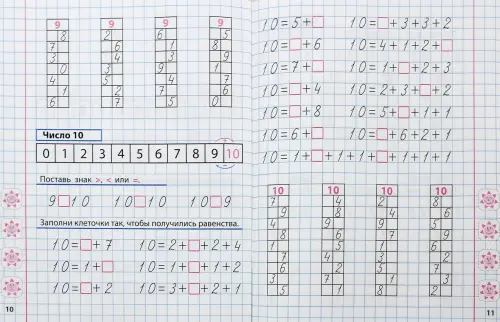 9 9 9 9
8 2 6 5
7 6 1 8
3 4 3 9
0 3 9 1
4 5 4 7
1 2 7 6
6 7 5 0
Число 10
0 1 2 3 4 5 6 7 8 9 10
Поставь знак >, < или =.
9□10 10□10 10□9
Заполни клеточки так, чтобы получились равенства.
10=□+7 10=2+□+2+4
10=1+□ 10=1+□+1+2
10=□+2 10=3+□+2+1
10
10=5+□ 10=□+3+3+2
10=□+6 10=4+1+2+□
10=7+□ 10=1+□+2+3
10=□+4 10=2+3+□+2
10=□+8 10=5+□+1+1
10=6+□ 10=□+6+2+1
10=1+□+1+1+□+1+1+1
10 10 10 10
7 4 2 8
9 8 4 6
4 9 9 5
8 6 7 9
1 5 1 6
7 4 3 2
6 2 5 7
3 7 1 3
5 1 8 2
11